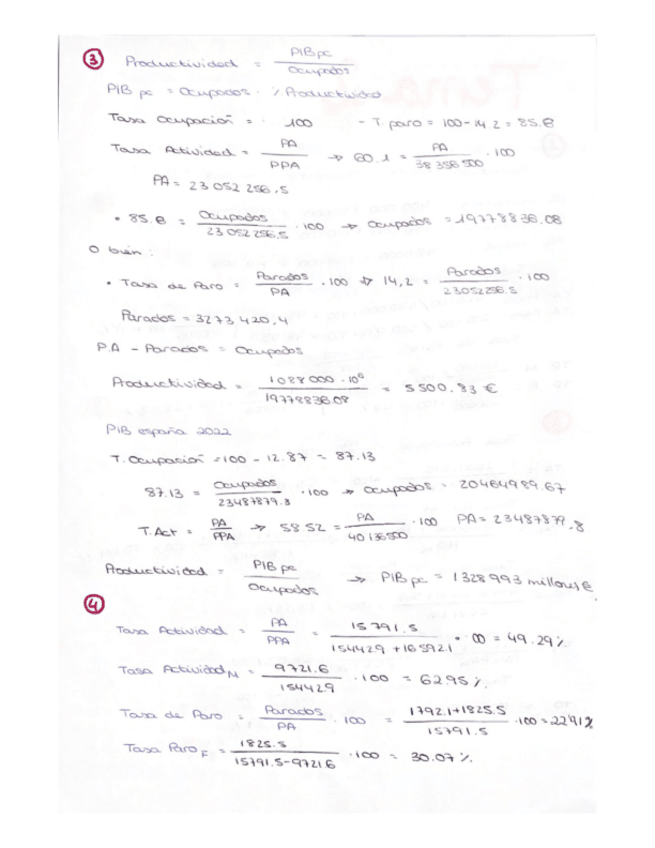 ③ Productividad = PIBpc / Ocupados
PIB pc = Ocupados · / Productividad
Tasa Ocupación = · 100 - T. paro = 100-14,2 = 85.8
Tasa Actividad = PA / PPA → 60.1 = PA / 38 356 500 · 100
PA = 23 052 256,5
• 85.8 = Ocupados / 23 052 256,5 · 100 → Ocupados = 19778836.08
O bien:
• Tasa de Paro = Parados / PA · 100 → 14,2 = Parados / 23052256.5 · 100
Parados = 3273 420,4
P.A - Parados = Ocupados
Productividad = 1088 000 · 10⁶ / 19778836.08 = 5500.83 €
PIB españa 2022
T. Ocupación = 100 - 12.87 = 87.13
87.13 = Ocupados / 23487879.8 · 100 → Ocupados = 20464989.67
T. Act = PA / PPA → 58 52 = PA / 40 136 500 · 100 PA = 23487879,8
Productividad = PIB pc / Ocupados → PIB pc = 1328 993 millones €
④
Tasa Actividad = PA / PPA = 15 791.5 / 15442.9 + 16 592.1 · 00 = 49.29 %
Tasa Actividad M = 9721.6 / 15442.9 · 100 = 62 95 %
Tasa de Paro = Parados / PA · 100 = 1792.1+1825.5 / 15791.5 · 100 = 22'91 %
Tasa Paro F = 1825.5 / 15791.5-9721.6 · 100 = 30.07 %